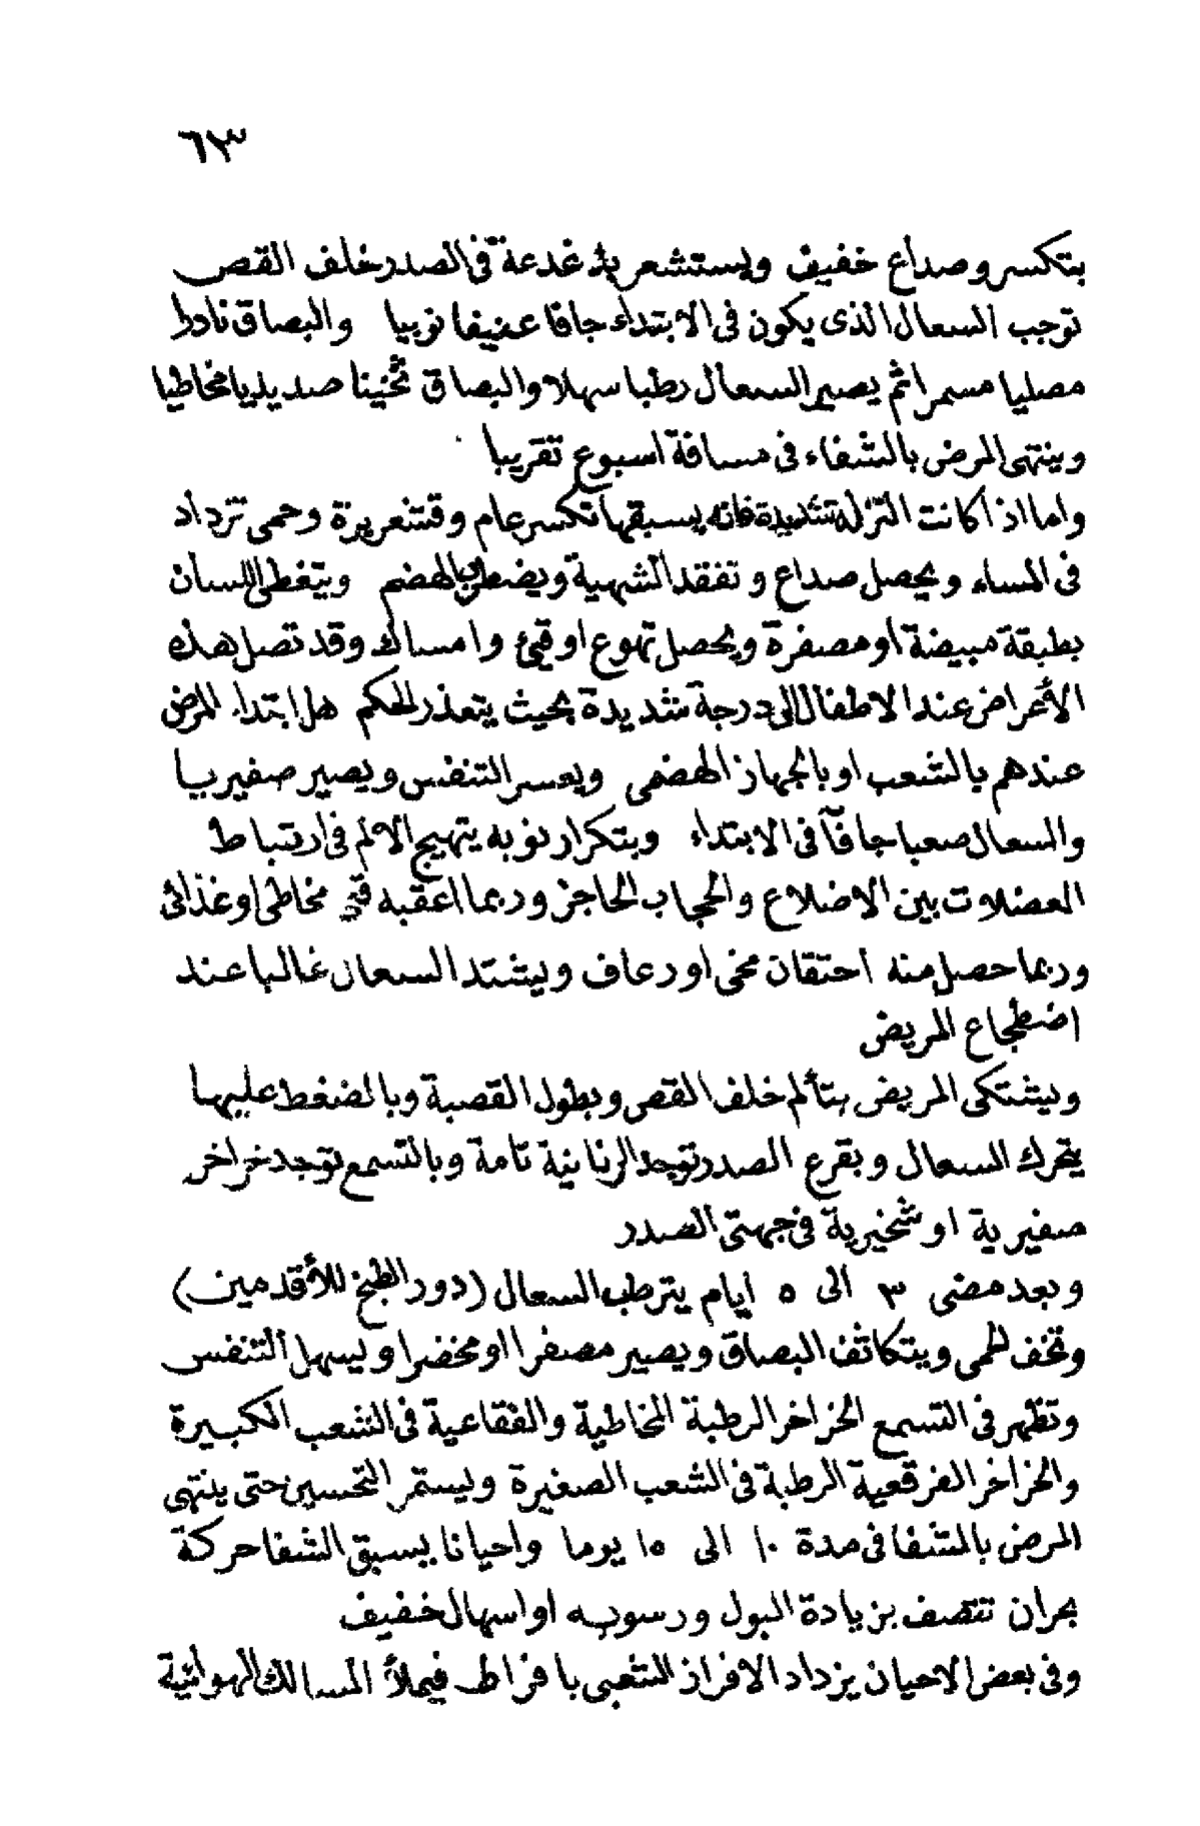 ٦٣
بتكسر وصداع خفيف ويستشعر بدغدغة في الصدر خلف القص
توجب السعال الذى يكون فى الابتداء جافا عنيفا نوبيا والبصاق نادرا
مصليا مسمرا ثم يصير السعال رطبا سهلا والبصاق ثخينا صديديا مخاطيا
وينتهى المرض بالشفاء فى مسافة اسبوع تقريبا
واما اذا كانت النزلة شديدة فانه يسبقها تكسر عام وقشعريرة وحمى تزداد
فى المساء ويحصل صداع وتفقد الشهية ويضطرب الهضم ويتغطى اللسان
بطبقة مبيضة أو مصفرة ويحصل تهوع او قيئ وامساك وقد تصل هذه
الأعراض عند الاطفال الى درجة شديدة بحيث يتعذر الحكم هل ابتداء المرض
عندهم بالشعب او بالجهاز الهضمى ويعسر التنفس ويصير صفيريا
والسعال صعبا جافا فى الابتداء وبتكرار نوبه يتهيج الالم فى ارتباط
العضلات بين الاضلاع والحجاب الحاجز وربما اعقبه قئ مخاطى او غذائى
وربما حصل منه احتقان مخى او رعاف ويشتد السعال غالبا عند
اضطجاع المريض
ويشتكى المريض بتألم خلف القص وبطول القصبة وبالضغط عليها
يتحرك السعال وبقرع الصدر توجد الرنانية تامة وبالتسمع توجد خراخر
صفيرية او شخيرية فى جهتى الصدر
وبعد مضى ٣ الى ٥ ايام يترطب السعال (دور الطبخ للأقدمين)
وتخف الحمى ويتكاثف البصاق ويصير مصفرا او مخضرا ويسهل التنفس
وتظهر فى التسمع الخراخر الرطبة المخاطية والفقاعية فى الشعب الكبيرة
والخراخر الفرقعية الرطبة فى الشعب الصغيرة ويستمر التحسين حتى ينتهى
المرض بالشفا فى مدة ١٠ الى ١٥ يوما واحيانا يسبق الشفا حركة
بحران تتصف بزيادة البول ورسوبه او اسهال خفيف
وفى بعض الاحيان يزداد الافراز الشعبى بافراط فيملأ المسالك الهوائية